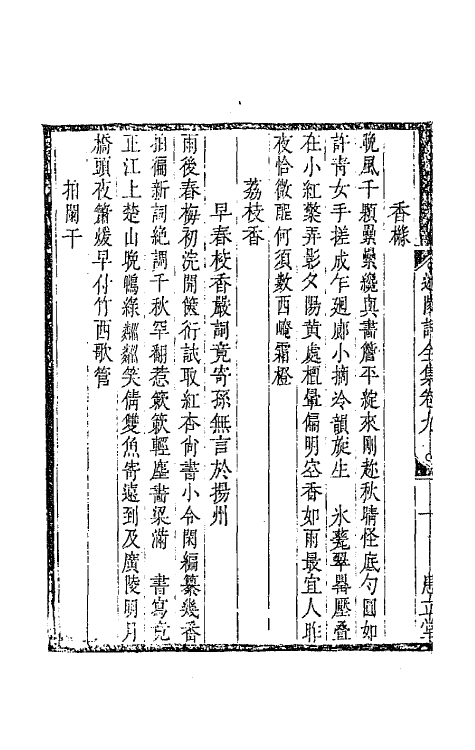 香櫞
晚風千顆纍纍纔與畫簷平綻來剛趂秋晴怪底勺圓如
許靑女手搓成乍廻廊小摘冷韻旋生　氷甆翠羃壓疊
在小紅檠弄影夕陽黃處檀暈偏明空香如雨最宜人昨
夜恰微酲何須數西崦霜橙
荔枝香
早春校香嚴詞竟寄孫無言於揚州
雨後春梅初浣開篋衍試取紅杏尚書小令閑編纂幾番
拍徧新詞絶調千秋罕翻惹簌簌輕塵畵梁滿　書寫竟
正江上楚山晚鴨綠粼粼笑倩雙魚寄遠到及廣陵明月
橋頭夜簫媛早付竹西歌管
拍闌干
詞全集卷九
十